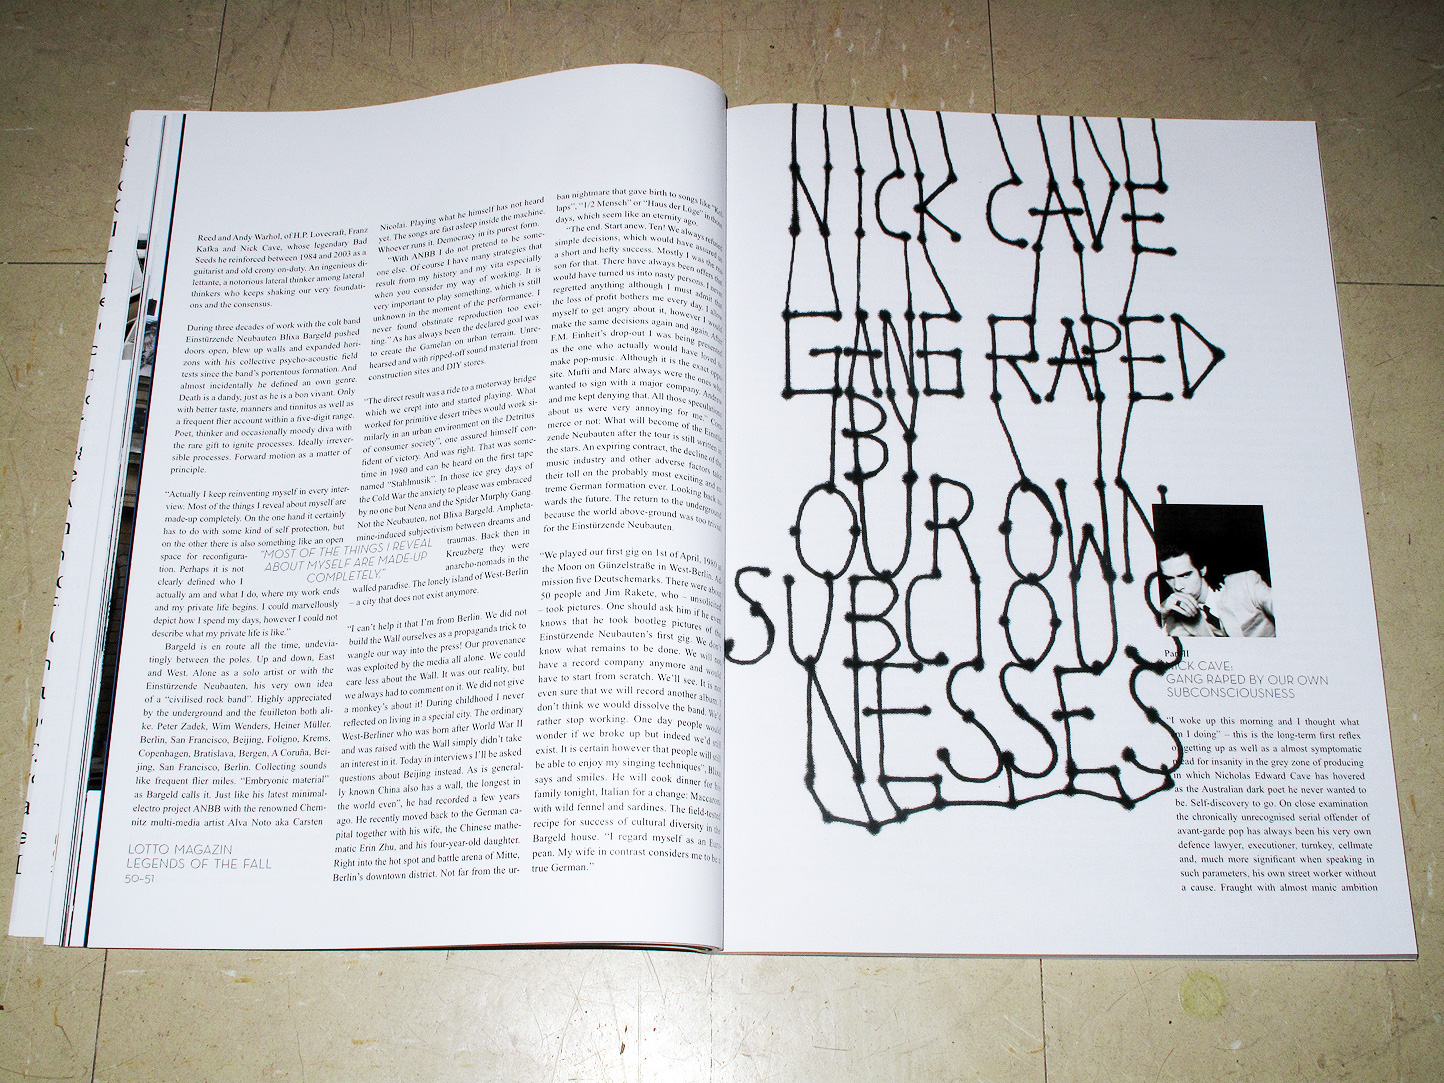 Reed and Andy Warhol, of H.P. Lovecraft, Franz
Kafka and Nick Cave, whose legendary Bad
Seeds he reinforced between 1984 and 2003 as a
guitarist and old crony on-duty. An ingenious di-
lettante, a notorious lateral thinker among lateral
thinkers who keeps shaking our very foundati-
ons and the consensus.
During three decades of work with the cult band
Einstürzende Neubauten Blixa Bargeld pushed
doors open, blew up walls and expanded hori-
zons with his collective psycho-acoustic field
tests since the band's portentous formation. And
almost incidentally he defined an own genre.
Death is a dandy, just as he is a bon vivant. Only
with better taste, manners and tinnitus as well as
a frequent flier account within a five-digit range.
Poet, thinker and occasionally moody diva with
the rare gift to ignite processes. Ideally irrever-
sible processes. Forward motion as a matter of
principle.
“Actually I keep reinventing myself in every inter-
view. Most of the things I reveal about myself are
made-up completely. On the one hand it certainly
has to do with some kind of self protection, but
on the other there is also something like an open
space for reconfigura-
tion. Perhaps it is not
clearly defined who I
actually am and what I do, where my work ends
and my private life begins. I could marvellously
depict how I spend my days, however I could not
describe what my private life is like.”
Bargeld is en route all the time, undevia-
tingly between the poles. Up and down, East
and West. Alone as a solo artist or with the
Einstürzende Neubauten, his very own idea
of a “civilised rock band”. Highly appreciated
by the underground and the feuilleton both ali-
ke. Peter Zadek, Wim Wenders, Heiner Müller.
Berlin, San Francisco, Beijing, Foligno, Krems,
Copenhagen, Bratislava, Bergen, A Coruña, Bei-
jing, San Francisco, Berlin. Collecting sounds
like frequent flier miles. “Embryonic material”
as Bargeld calls it. Just like his latest minimal-
electro project ANBB with the renowned Chem-
nitz multi-media artist Alva Noto aka Carsten
LOTTO MAGAZIN
LEGENDS OF THE FALL
50-51
“MOST OF THE THINGS I REVEAL
ABOUT MYSELF ARE MADE-UP
COMPLETELY.”
Nicolai. Playing what he himself has not heard
yet. The songs are fast asleep inside the machine.
Whoever runs it. Democracy in its purest form.
“With ANBB I do not pretend to be some-
one else. Of course I have many strategies that
result from my history and my vita especially
when you consider my way of working. It is
very important to play something, which is still
unknown in the moment of the performance. I
never found obstinate reproduction too exci-
ting.” As has always been the declared goal was
to create the Gamelan on urban terrain. Unre-
hearsed and with ripped-off sound material from
construction sites and DIY stores.
“The direct result was a ride to a motorway bridge
which we crept into and started playing. What
worked for primitive desert tribes would work si-
milarly in an urban environment on the Detritus
of consumer society”, one assured himself con-
fident of victory. And was right. That was some-
time in 1980 and can be heard on the first tape
named “Stahlmusik”. In those ice grey days of
the Cold War the anxiety to please was embraced
by no one but Nena and the Spider Murphy Gang.
Not the Neubauten, not Blixa Bargeld. Ampheta-
mine-induced subjectivism between dreams and
traumas. Back then in
Kreuzberg they were
anarcho-nomads in the
walled paradise. The lonely island of West-Berlin
– a city that does not exist anymore.
“I can't help it that I'm from Berlin. We did not
build the Wall ourselves as a propaganda trick to
wangle our way into the press! Our provenance
was exploited by the media all alone. We could
care less about the Wall. It was our reality, but
we always had to comment on it. We did not give
a monkey's about it! During childhood I never
reflected on living in a special city. The ordinary
West-Berliner who was born after World War II
and was raised with the Wall simply didn't take
an interest in it. Today in interviews I'll be asked
questions about Beijing instead. As is general-
ly known China also has a wall, the longest in
the world even”, he had recorded a few years
ago. He recently moved back to the German ca-
pital together with his wife, the Chinese mathe-
matic Erin Zhu, and his four-year-old daughter.
Right into the hot spot and battle arena of Mitte,
Berlin's downtown district. Not far from the ur-
ban nightmare that gave birth to songs like
laps”, “1/2 Mensch” or “Haus der Lüge” in those
days, which seem like an eternity ago.
“The end. Start anew. Ten! We always refused
simple decisions, which would have assured us
a short and hefty success. Mostly I was the rea-
son for that. There have always been offers that
would have turned us into nasty persons. I never
regretted anything although I must admit that
the loss of profit bothers me every day. I allow
myself to get angry about it, however I would
make the same decisions again and again. After
F.M. Einheit's drop-out I was being presented
as the one who actually would have loved to
make pop-music. Although it is the exact oppo-
site. Muffi and Marc always were the ones who
wanted to sign with a major company. Andrew
and me kept denying that. All those speculations
about us were very annoying for me.” Com-
merce or not: What will become of the Einstür-
zende Neubauten after the tour is still written in
the stars. An expiring contract, the decline of the
music industry and other adverse factors take
their toll on the probably most exciting and ex-
treme German formation ever. Looking back to-
wards the future. The return to the underground
because the world above-ground was too trivial
for the Einstürzende Neubauten.
“We played our first gig on 1st of April, 1980 at
the Moon on Günzelstraße in West-Berlin. Ad-
mission five Deutschemarks. There were about
50 people and Jim Rakete, who – unsolicited
– took pictures. One should ask him if he ever
knows that he took bootleg pictures of the
Einstürzende Neubauten's first gig. We don't
know what remains to be done. We will not
have a record company anymore and would
have to start from scratch. We'll see. It is not
even sure that we will record another album. I
don't think we would dissolve the band. We'd
rather stop working. One day people would
wonder if we broke up but indeed we'd still
exist. It is certain however that people will still
be able to enjoy my singing techniques”, Blixa
says and smiles. He will cook dinner for his
family tonight, Italian for a change: Maccaroni
with wild fennel and sardines. The field-tested
recipe for success of cultural diversity in the
Bargeld house. “I regard myself as an Euro-
pean. My wife in contrast considers me to be a
true German.”
NICK CAVE
GANG RAPED
BY
OUR OWN
SUBCIOUS
NESSES
Part II
NICK CAVE:
GANG RAPED BY OUR OWN
SUBCONSCIOUSNESS
“I woke up this morning and I thought what
am I doing” – this is the long-term first reflex
of getting up as well as a almost symptomatic
plead for insanity in the grey zone of producing
in which Nicholas Edward Cave has hovered
as the Australian dark poet he never wanted to
be. Self-discovery to go. On close examination
the chronically unrecognised serial offender of
avant-garde pop has always been his very own
defence lawyer, executioner, turnkey, cellmate
and, much more significant when speaking in
such parameters, his own street worker without
a cause. Fraught with almost manic ambition